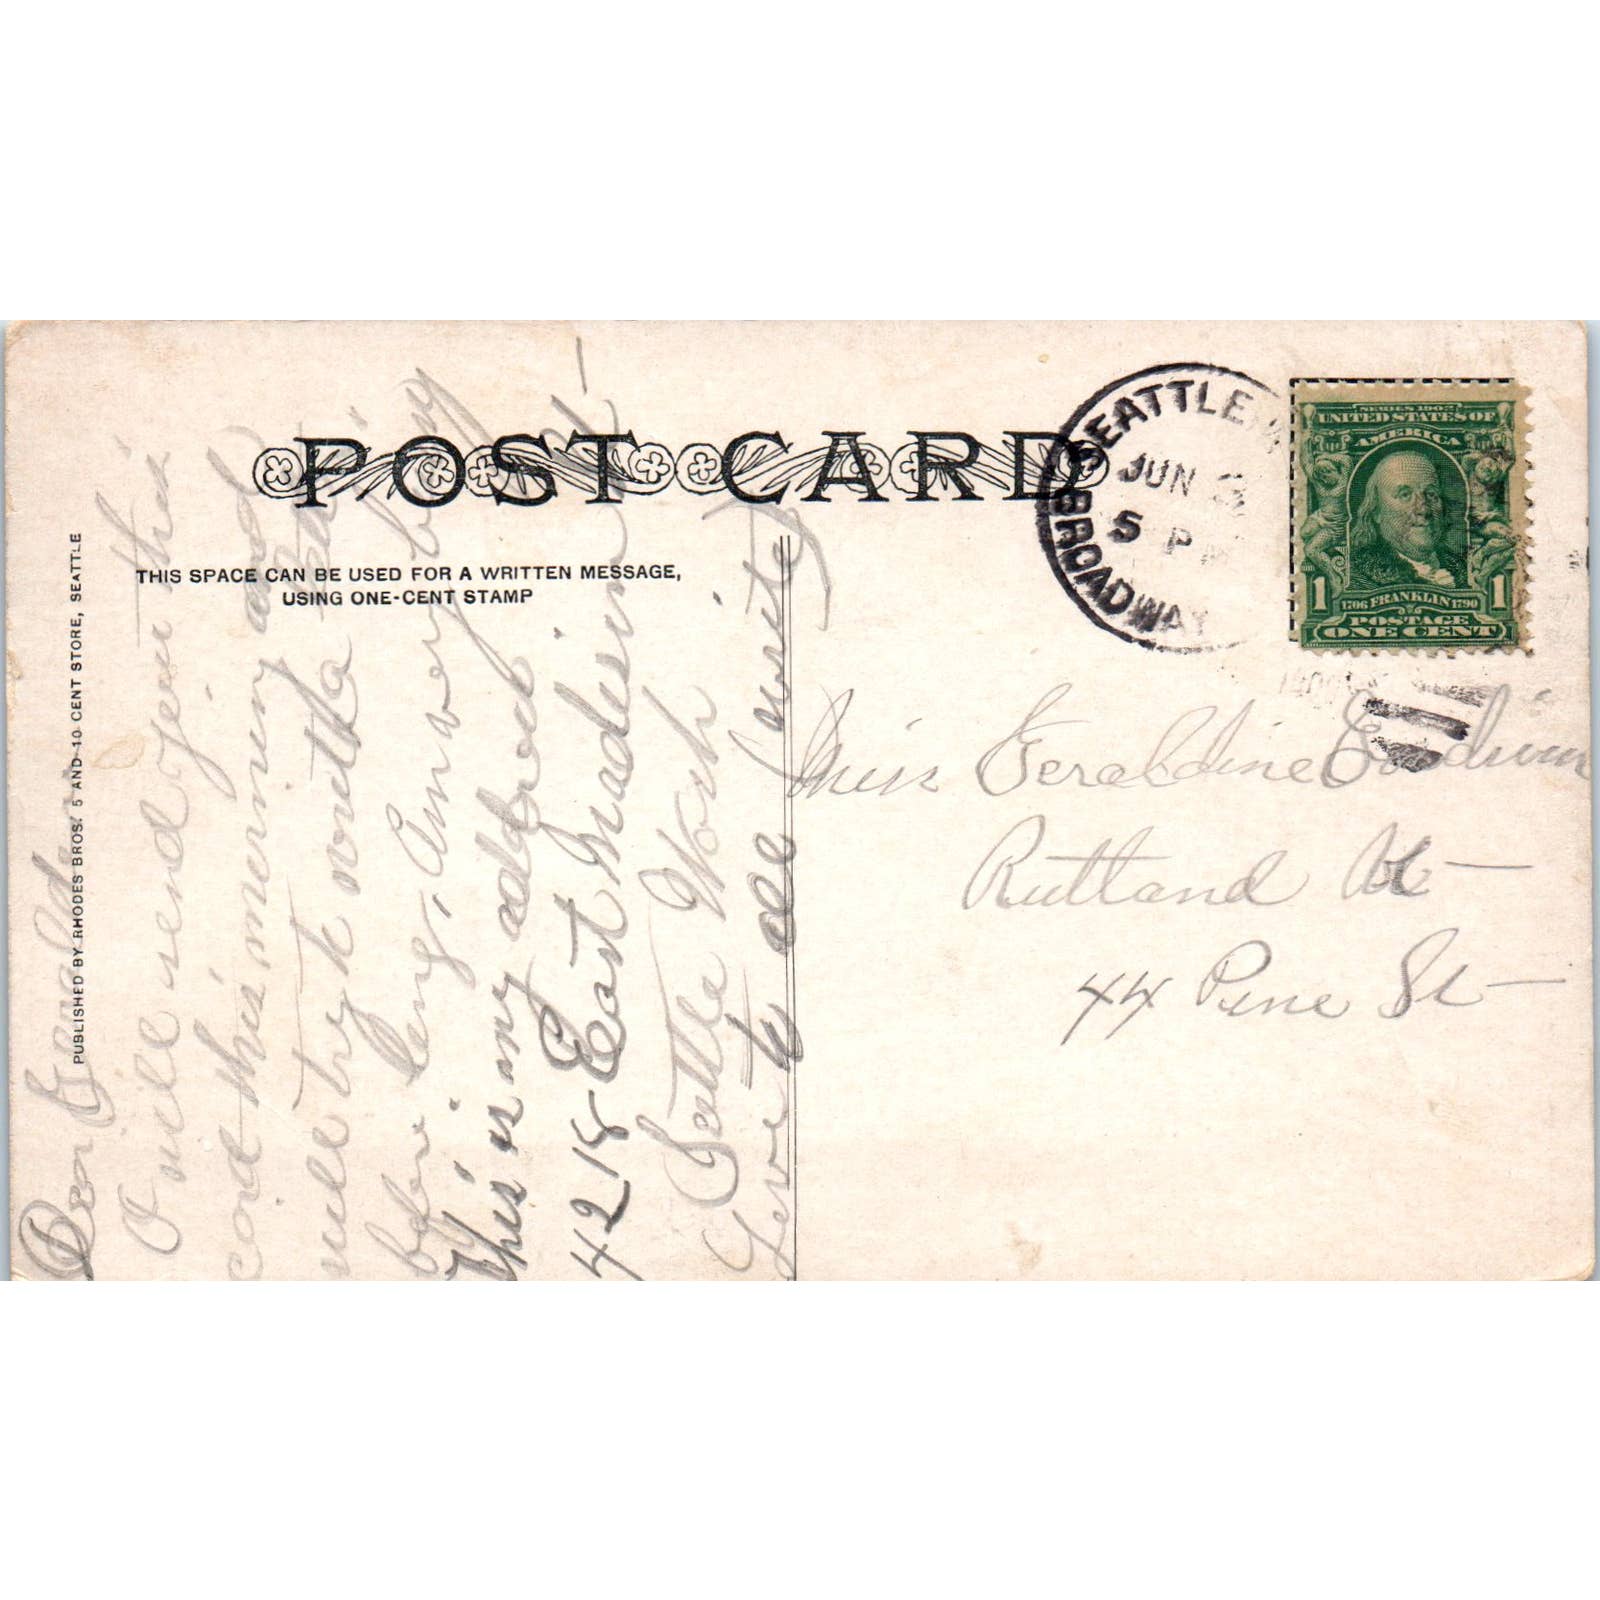 POST CARD
THIS SPACE CAN BE USED FOR A WRITTEN MESSAGE,
USING ONE-CENT STAMP
PUBLISHED BY RHODES BROS. 5 AND 10 CENT STORE, SEATTLE
SEATTLE, W
JUN
5 PM
BROADWAY
SERIES 1902
UNITED STATES OF
AMERICA
1 1706 FRANKLIN 1790 1
POSTAGE
ONE CENT
Dear Geraldine
I will send you this
card this morning and
will try &
before long. Answer
This is my address
4218 East Madison St
Seattle Wash
Love to all write
Miss Geraldine Goodwin
Rutland Vt
44 Pine St